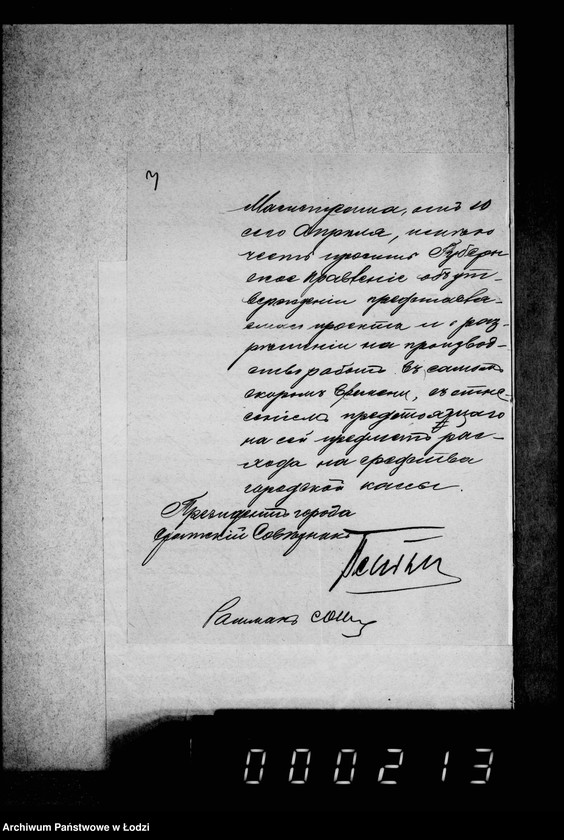 Магистрата, отъ 10
сего Апрѣля, имѣю
честь просить Губерн
ское Правленіе объ ут-
вержденіи представля-
емаго проекта и о раз-
рѣшеніи на производ-
ство работъ въ самомъ
скоромъ времени, съ отне-
сеніемъ предстоящаго
на сей предметъ рас-
хода на средства
городской кассы.
Президентъ города
Совѣтникъ
000213
Archiwum Państwowe w Łodzi